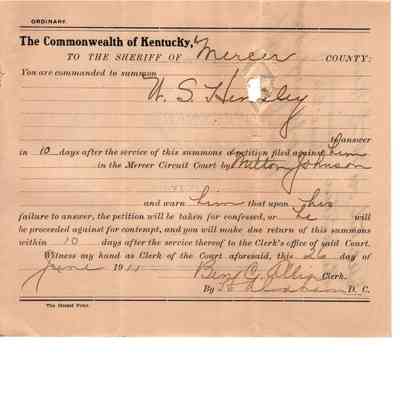 ORDINARY.
The Commonwealth of Kentucky,
TO THE SHERIFF OF Mercer COUNTY:
You are commanded to summon
W. S. Hensley
to answer
in 10 days after the service of this summons a petition filed against him
in the Mercer Circuit Court by Milton Johnson
and warn him that upon his
failure to answer, the petition will be taken for confessed, or he will
be proceeded against for contempt, and you will make due return of this summons
within 10 days after the service thereof to the Clerk's office of said Court.
Witness my hand as Clerk of the Court aforesaid, this 26 day of
June 1911 Ben C. Allin Clerk.
By D. C.